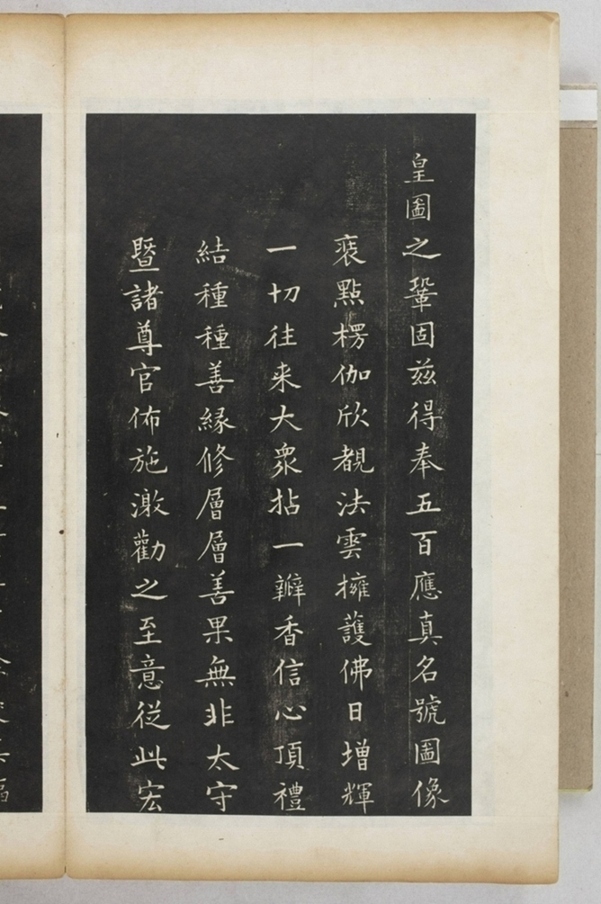 皇圖之鞏固兹得奉五百應真名號圖像
裝點楞伽欣覩法雲擁護佛日增輝
一切往来大衆拈一瓣香信心頂禮
結種種善緣修層層善果無非太守
暨諸尊官佈施激勸之至意從此宏